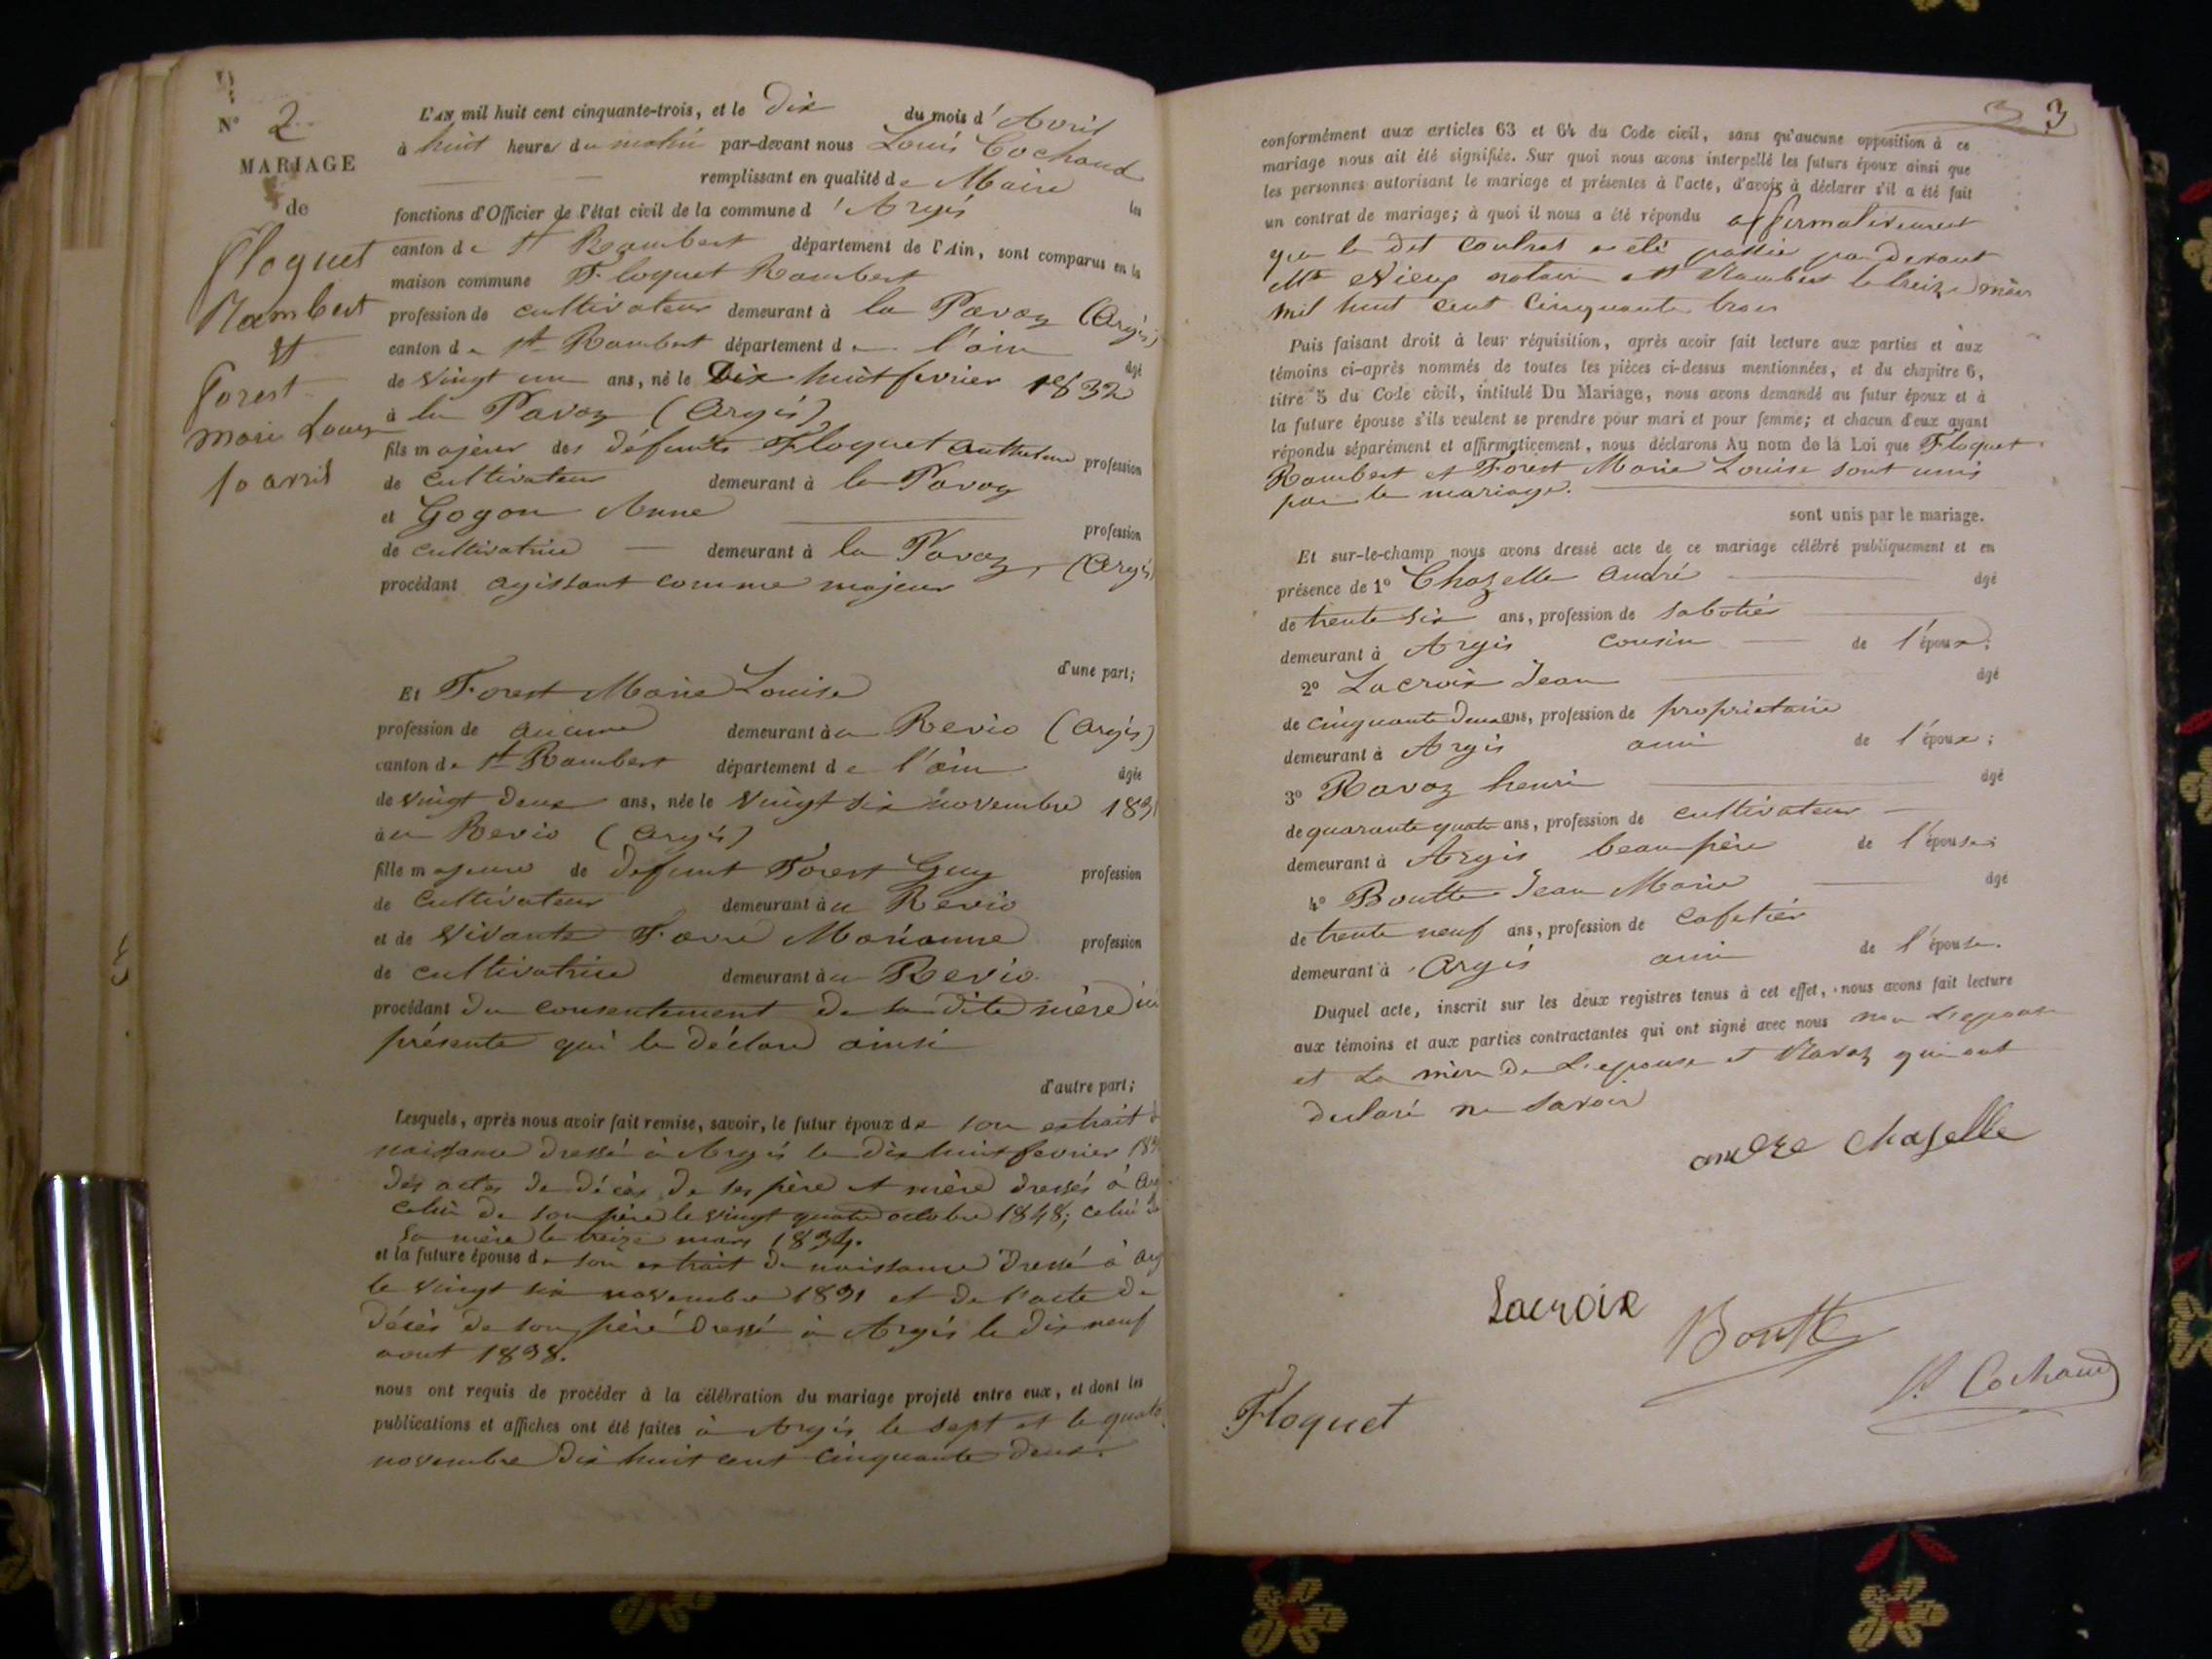 N° 2
MARIAGE
de
Floquet
Rambert
et
Forest
marie Louise
10 avril
L'AN mil huit cent cinquante-trois, et le Dix du mois d'Avril
à huit heures du matin par-devant nous Louis Cochaud
remplissant en qualité de Maire les
fonctions d'Officier de l'état civil de la commune d'Argis
canton de St Rambert département de l'Ain, sont comparus en la
maison commune Floquet Rambert
profession de cultivateur demeurant à la Pavaz (Argis)
canton de St Rambert département de l'ain âgé
de vingt un ans, né le Dix huit fevrier 1832
à la Pavaz (Argis)
fils majeur des défunts Floquet Anthelme profession
de cultivateur demeurant à la Pavaz
et Gogon Anne profession
de cultivatrice demeurant à la Pavaz, (Argis)
procédant agissant comme majeur
d'une part;
Et Forest Marie Louise
profession de aucune demeurant au Revio (Argis)
canton de St Rambert département de l'ain âgée
de vingt deux ans, née le vingt six novembre 1831
au Revio (Argis)
fille majeure de défunt Forest Guy profession
de cultivateur demeurant au Revio
et de vivante Favre Marianne profession
de cultivatrice demeurant au Revio
procédant du consentement de sa dite mère ici
présente qui le déclare ainsi
d'autre part;
Lesquels, après nous avoir fait remise, savoir, le futur époux de son extrait de
naissance dressé à Argis le dix huit fevrier
des actes de décès de ses père et mère dressés à
celui de son père le vingt quatre octobre 1848; celui de
sa mère le treize mars 1834.
et la future épouse de son extrait de naissance dressé à
le vingt six novembre 1831 et de l'acte de
décès de son père dressé à Argis le dix neuf
aout 1838.
nous ont requis de procéder à la célébration du mariage projeté entre eux, et dont les
publications et affiches ont été faites à Argis le sept et le
novembre dix huit cent cinquante deux.
3 3
conformément aux articles 63 et 64 du Code civil, sans qu'aucune opposition à ce
mariage nous ait été signifiée. Sur quoi nous avons interpellé les futurs époux ainsi que
les personnes autorisant le mariage et présentes à l'acte, d'avoir à déclarer s'il a été fait
un contrat de mariage; à quoi il nous a été répondu affirmativement
que le dit contrat a été passé par devant
Me notaire à St Rambert le treize mars
mil huit cent cinquante trois
Puis faisant droit à leur réquisition, après avoir fait lecture aux parties et aux
témoins ci-après nommés de toutes les pièces ci-dessus mentionnées, et du chapitre 6,
titre 5 du Code civil, intitulé Du Mariage, nous avons demandé au futur époux et à
la future épouse s'ils veulent se prendre pour mari et pour femme; et chacun d'eux ayant
répondu séparément et affirmativement, nous déclarons Au nom de la Loi que Floquet
Rambert et Forest Marie Louise sont unis
par le mariage.
sont unis par le mariage.
Et sur-le-champ nous avons dressé acte de ce mariage célébré publiquement et en
présence de 1° Chazelle André âgé
de trente six ans, profession de sabotier
demeurant à Argis cousin de l'époux;
2° Lacroix Jean âgé
de cinquante deux ans, profession de propriétaire
demeurant à Argis ami de l'époux;
3° Ravoz henri âgé
de quarante quatre ans, profession de cultivateur
demeurant à Argis beau père de l'épouse;
4° Boutte Jean Marie âgé
de trente neuf ans, profession de cafetier
demeurant à Argis ami de l'épouse.
Duquel acte, inscrit sur les deux registres tenus à cet effet, nous avons fait lecture
aux témoins et aux parties contractantes qui ont signé avec nous non L'epouse
et La mère de L'epouse et Ravoz qui ont
declaré ne savoir
andre chaselle
Lacroix
Boutte
Floquet
L. Cochaud